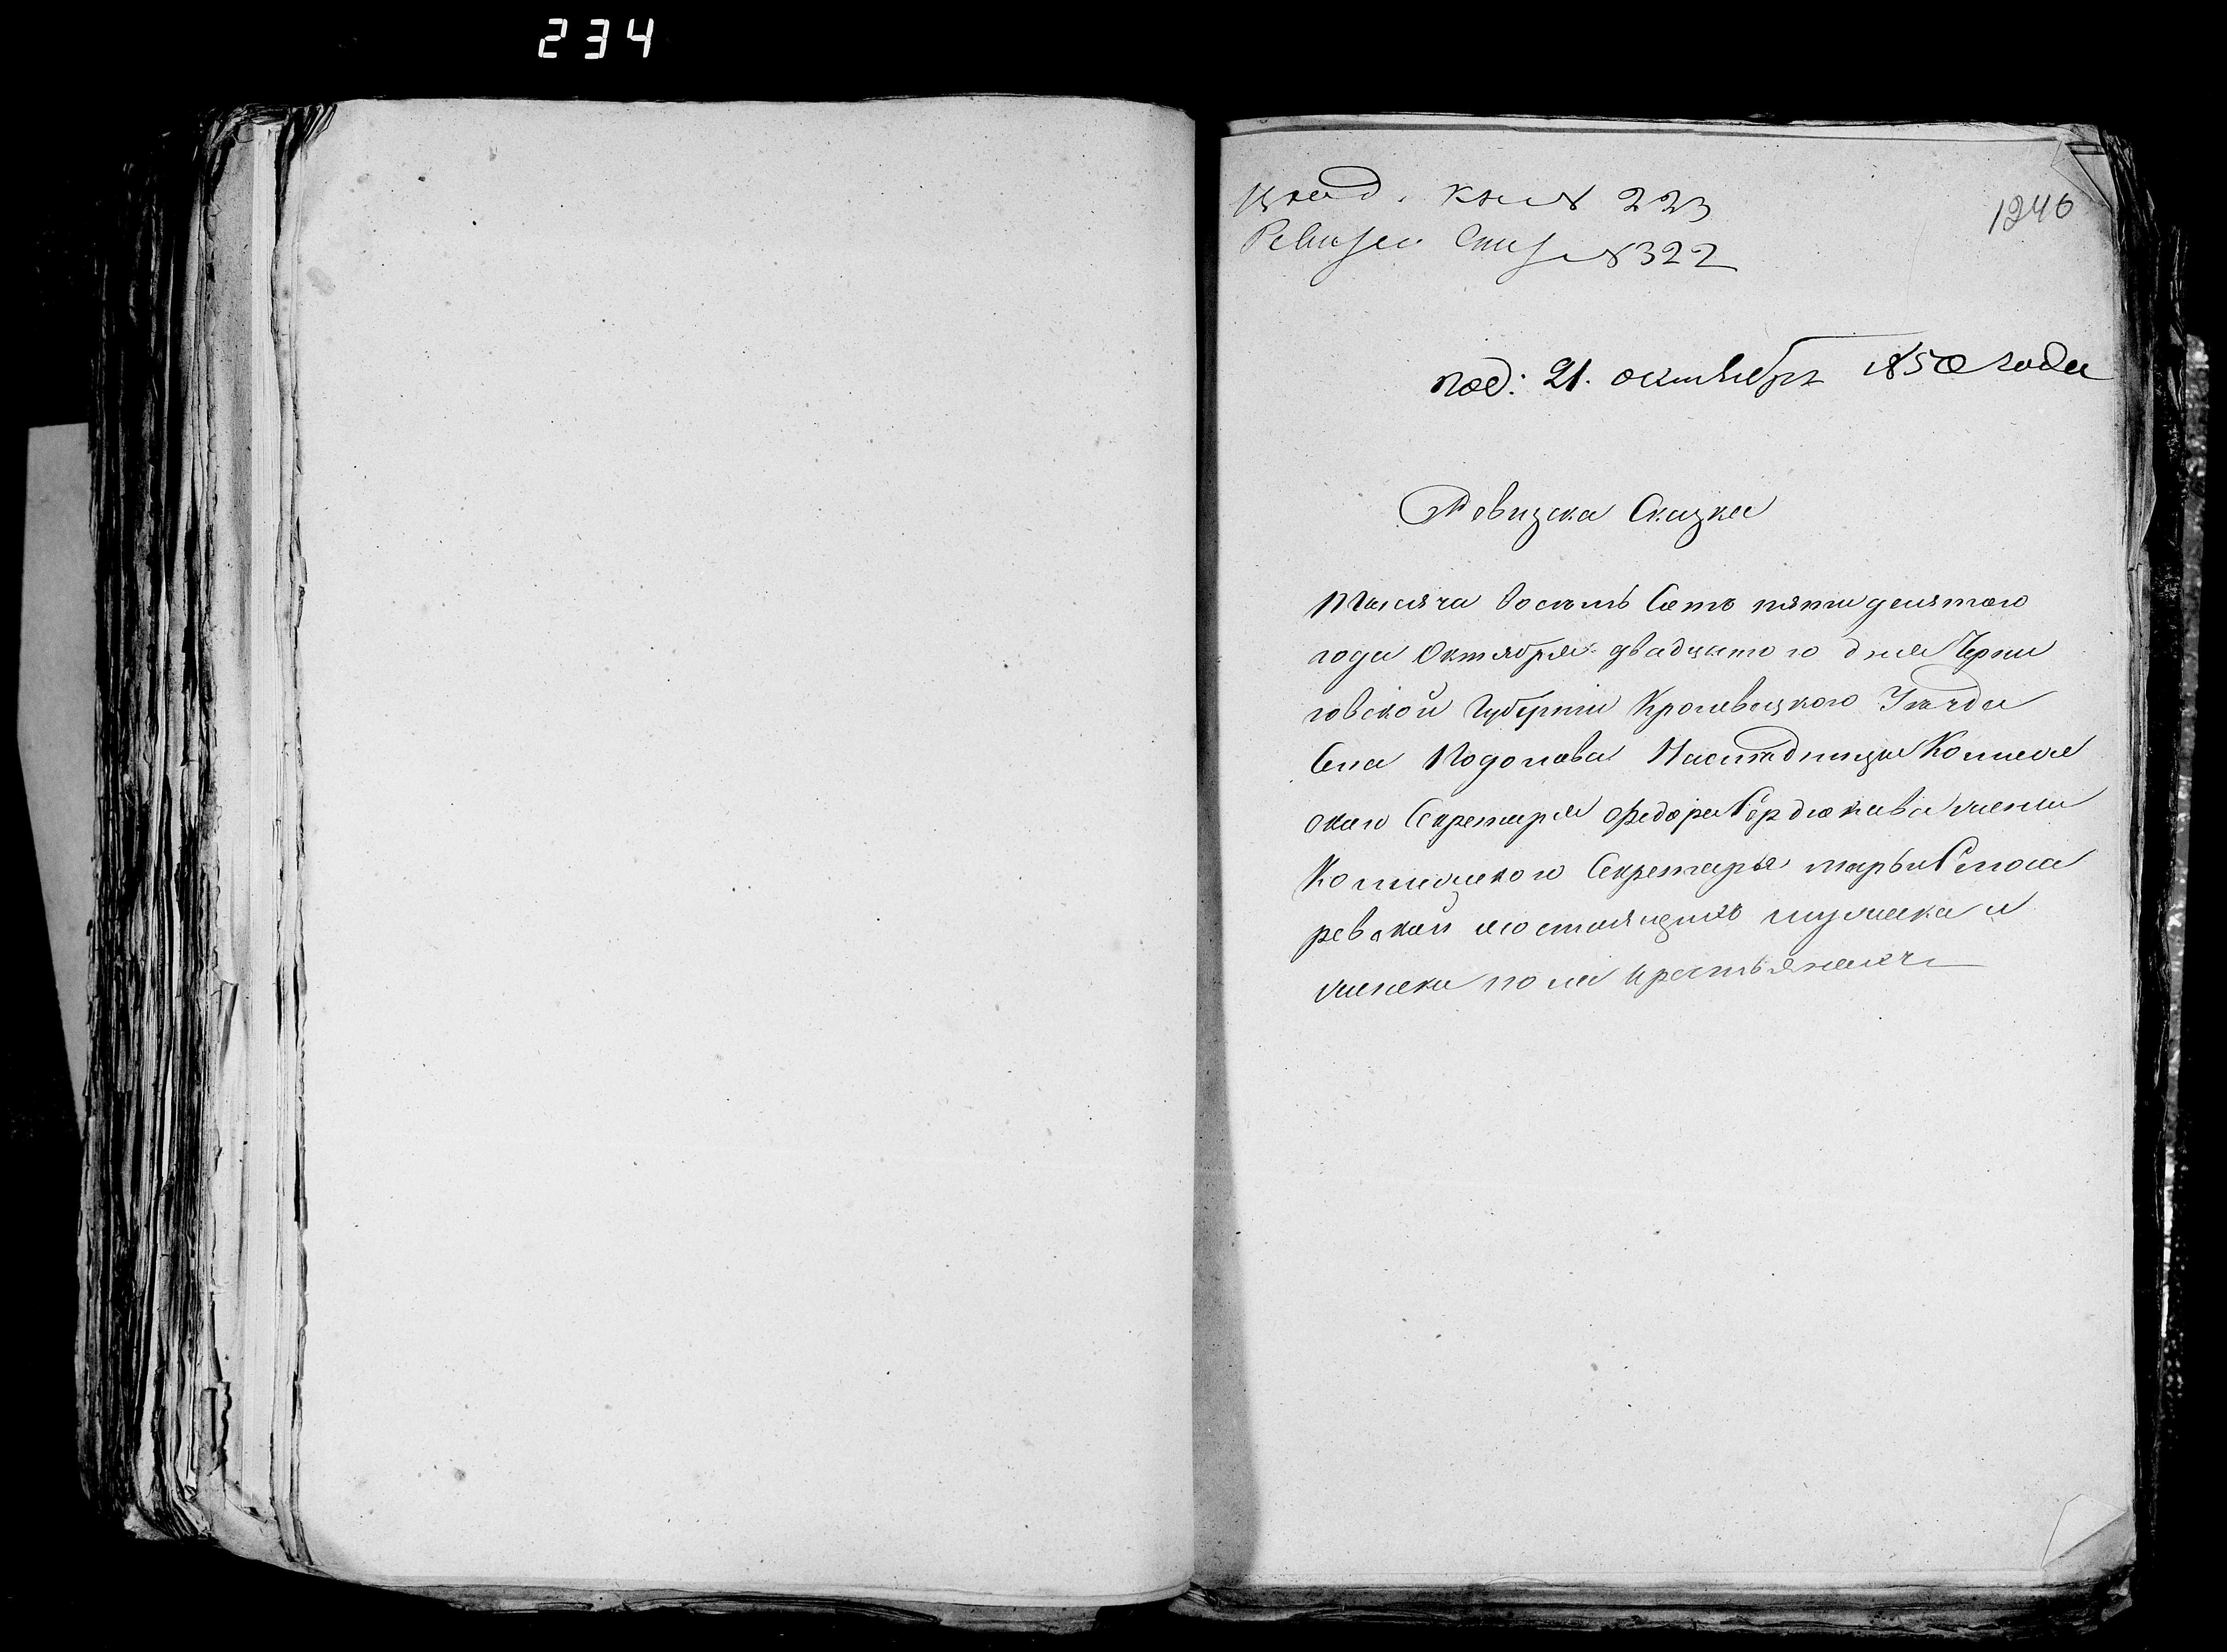 234
1246
кн № 223
Ревизс. Сказ № 322
под: 21. октября 1850 года
Ревизска Сказка
Тысяча восемь Сотъ пятидесятого
года Октября двадцатого дня Черни
говской Губерніи Кролевецкого Уезда
Села Подолова Наследници Колеже
ского Секретаря Федора Сердюкова жени
Колежского Секретаря марьи
ревской состоящихъ мужеска и
женска пола крестьянахъ